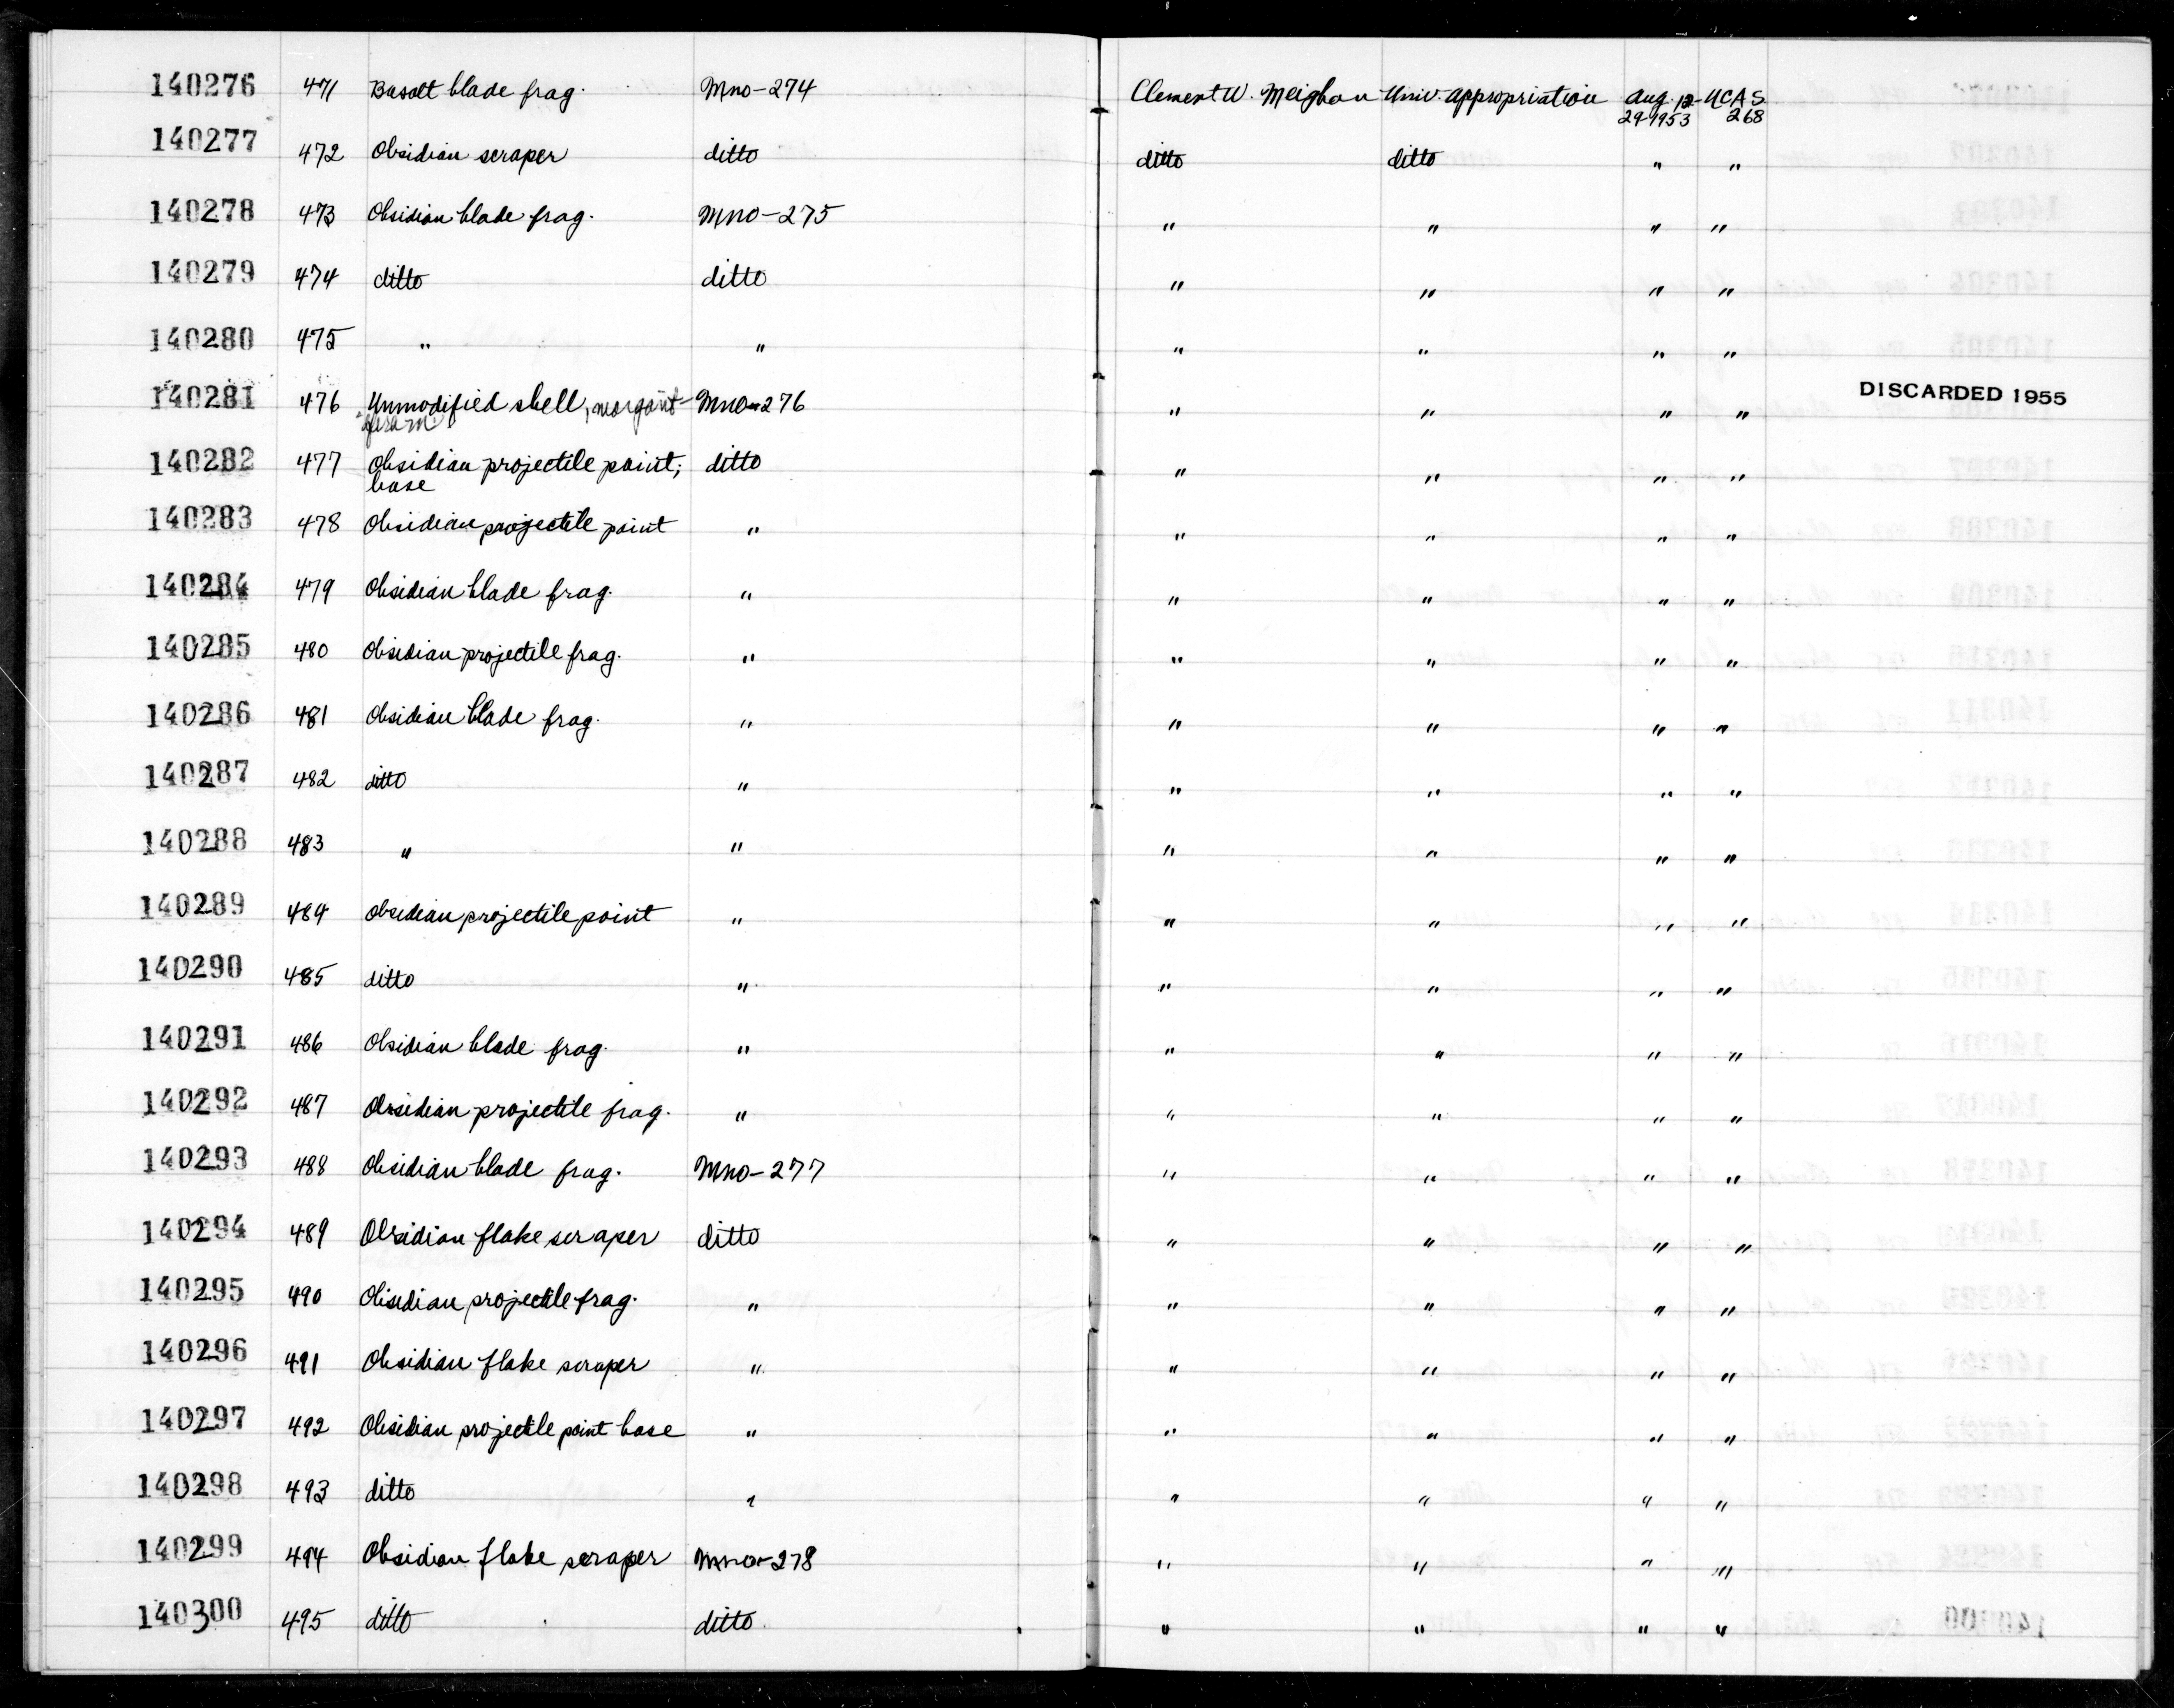 140276 471 Basalt blade frag. Mno-274 Clement W. Meighan Univ. appropriation Aug. 12- UCAS
29-1953 268
140277 472 Obsidian scraper ditto ditto ditto " "
140278 473 Obsidian blade frag. Mno-275 " " " "
140279 474 ditto ditto " " " "
140280 475 " " " " " "
140281 476 Unmodified shell, Mno-276 " " " " DISCARDED 1955
140282 477 Obsidian projectile point; ditto " " " "
base
140283 478 Obsidian projectile point " " " " "
140284 479 Obsidian blade frag. " " " " "
140285 480 Obsidian projectile frag. " " " " "
140286 481 Obsidian blade frag. " " " " "
140287 482 ditto " " " " "
140288 483 " " " " " "
140289 484 Obsidian projectile point " " " " "
140290 485 ditto " " " " "
140291 486 Obsidian blade frag. " " " " "
140292 487 Obsidian projectile frag. " " " " "
140293 488 Obsidian blade frag. Mno-277 " " " "
140294 489 Obsidian flake scraper ditto " " " "
140295 490 Obsidian projectile frag. " " " " "
140296 491 Obsidian flake scraper " " " " "
140297 492 Obsidian projectile point base " " " " "
140298 493 ditto " " " " "
140299 494 Obsidian flake scraper Mno-278 " " " "
140300 495 ditto ditto " " " "